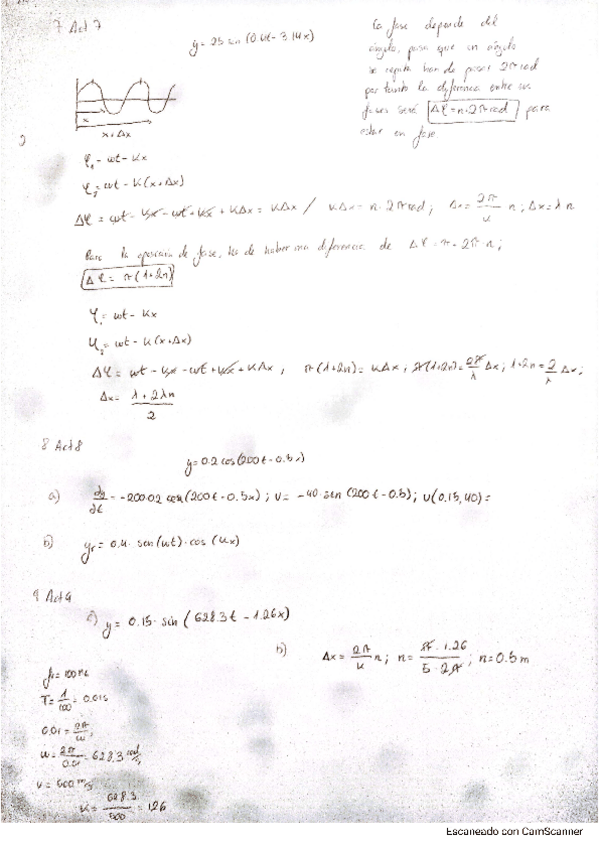 7 Act 7
y = 25 sen (0.4t - 3.14x)
La fase depende del
ángulo, para que un ángulo
se repita han de pasar 2π rad
por tanto la diferencia entre las
fases será Δφ = n·2π rad para
estar en fase.
x
x + Δx
φ₁ = ωt - Kx
φ₂ = ωt - K(x+Δx)
Δφ = ωt - Kx - ωt + Kx + KΔx = KΔx / KΔx = n·2π rad; Δx = 2π/K n; Δx = λn
Para la oposición de fase, ha de haber una diferencia de Δφ = π + 2π n;
Δφ = π(1+2n)
φ₁ = ωt - Kx
φ₂ = ωt - K(x+Δx)
Δφ = ωt - Kx - ωt + Kx + KΔx, π(1+2n) = KΔx; π(1+2n) = 2π/λ Δx; 1+2n = 2/λ Δx;
Δx = λ + 2λn / 2
8 Act 8
y = 0.2 cos(200t - 0.5x)
a) dy/dt = -200·0.2 sen(200t - 0.5x); v = -40·sen(200t - 0.5); v(0.15, 40) =
b) yᵣ = 0.4·sen(ωt)·cos(Kx)
9 Act 9
a) y = 0.15·sin(628.3t - 1.26x)
b) Δx = 2π/K n; n = π·1.26 / 5·2π; n = 0.5 m
f = 100 Hz
T = 1/100 = 0.01s
0.01 = 2π/ω;
ω = 2π/0.01 = 628.3 rad/s
v = 500 m/s
K = 628.3/500 = 1.26
Escaneado con CamScanner